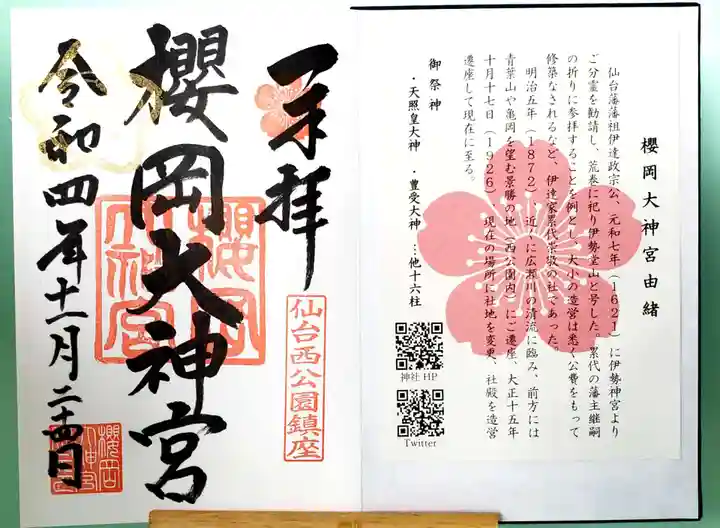 櫻岡大神宮由緒
仙台藩藩祖伊達政宗公、元和七年（1621）に伊勢神宮より
ご分霊を勧請し、荒巻に祀り伊勢堂山と号した。累代の藩主継嗣
の折りに参拝することを例とし、大小の造営は悉く公費をもって
修築なされるなど、伊達家累代崇敬の社であった。
明治五年（1872）近くに広瀬川の清流に臨み、前方には
青葉山や亀岡を望む景勝の地（西公園内）にご遷座、大正十五年
十月十七日（1926）、現在の場所に社地を変更、社殿を造営
遷座して現在に至る。
御祭神
・天照皇大神　・豊受大神　…他十六柱
神社HP
Twitter
奉拝
仙台西公園鎮座
櫻岡大神宮
櫻岡大神宮
令和四年十一月二十四日